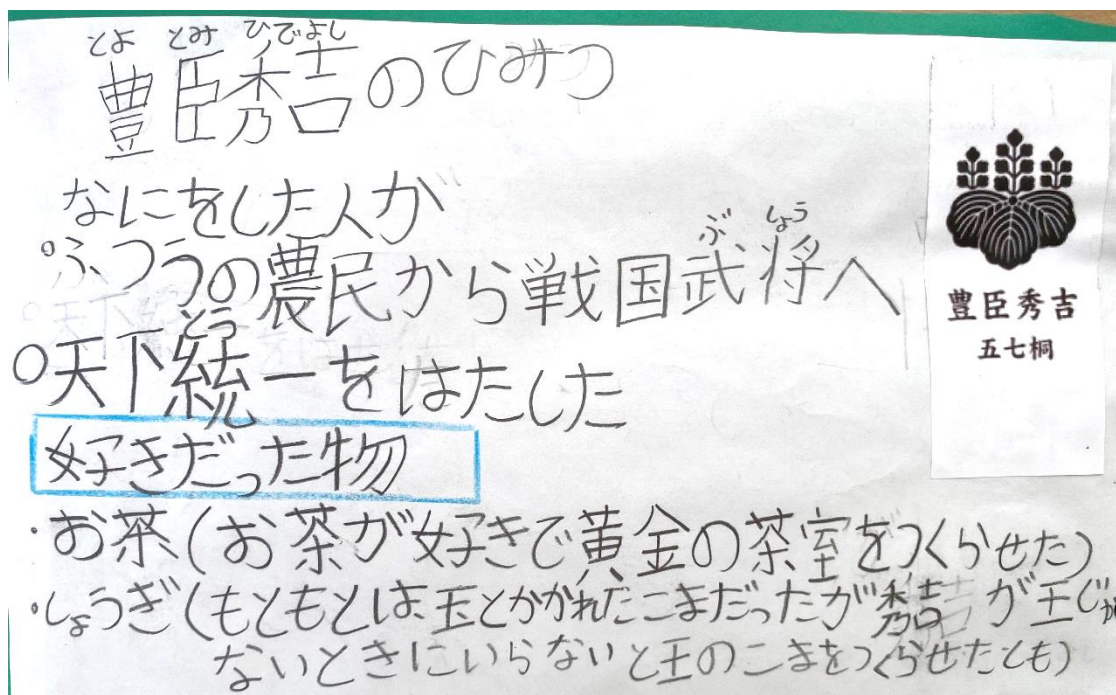 とよ とみ ひでよし
豊臣秀吉のひみつ
なにをした人か
ぶ しょう
°ふつうの農民から戦国武将へ
とう
○天下統一をはたした
好きだった物
・お茶(お茶が好きで黄金の茶室をつくらせた)
・しょうぎ(もともとは玉とかかれたこまだったが秀吉が王じゃ
ないときにいらないと王のこまをつくらせたとも)
豊臣秀吉
五七桐